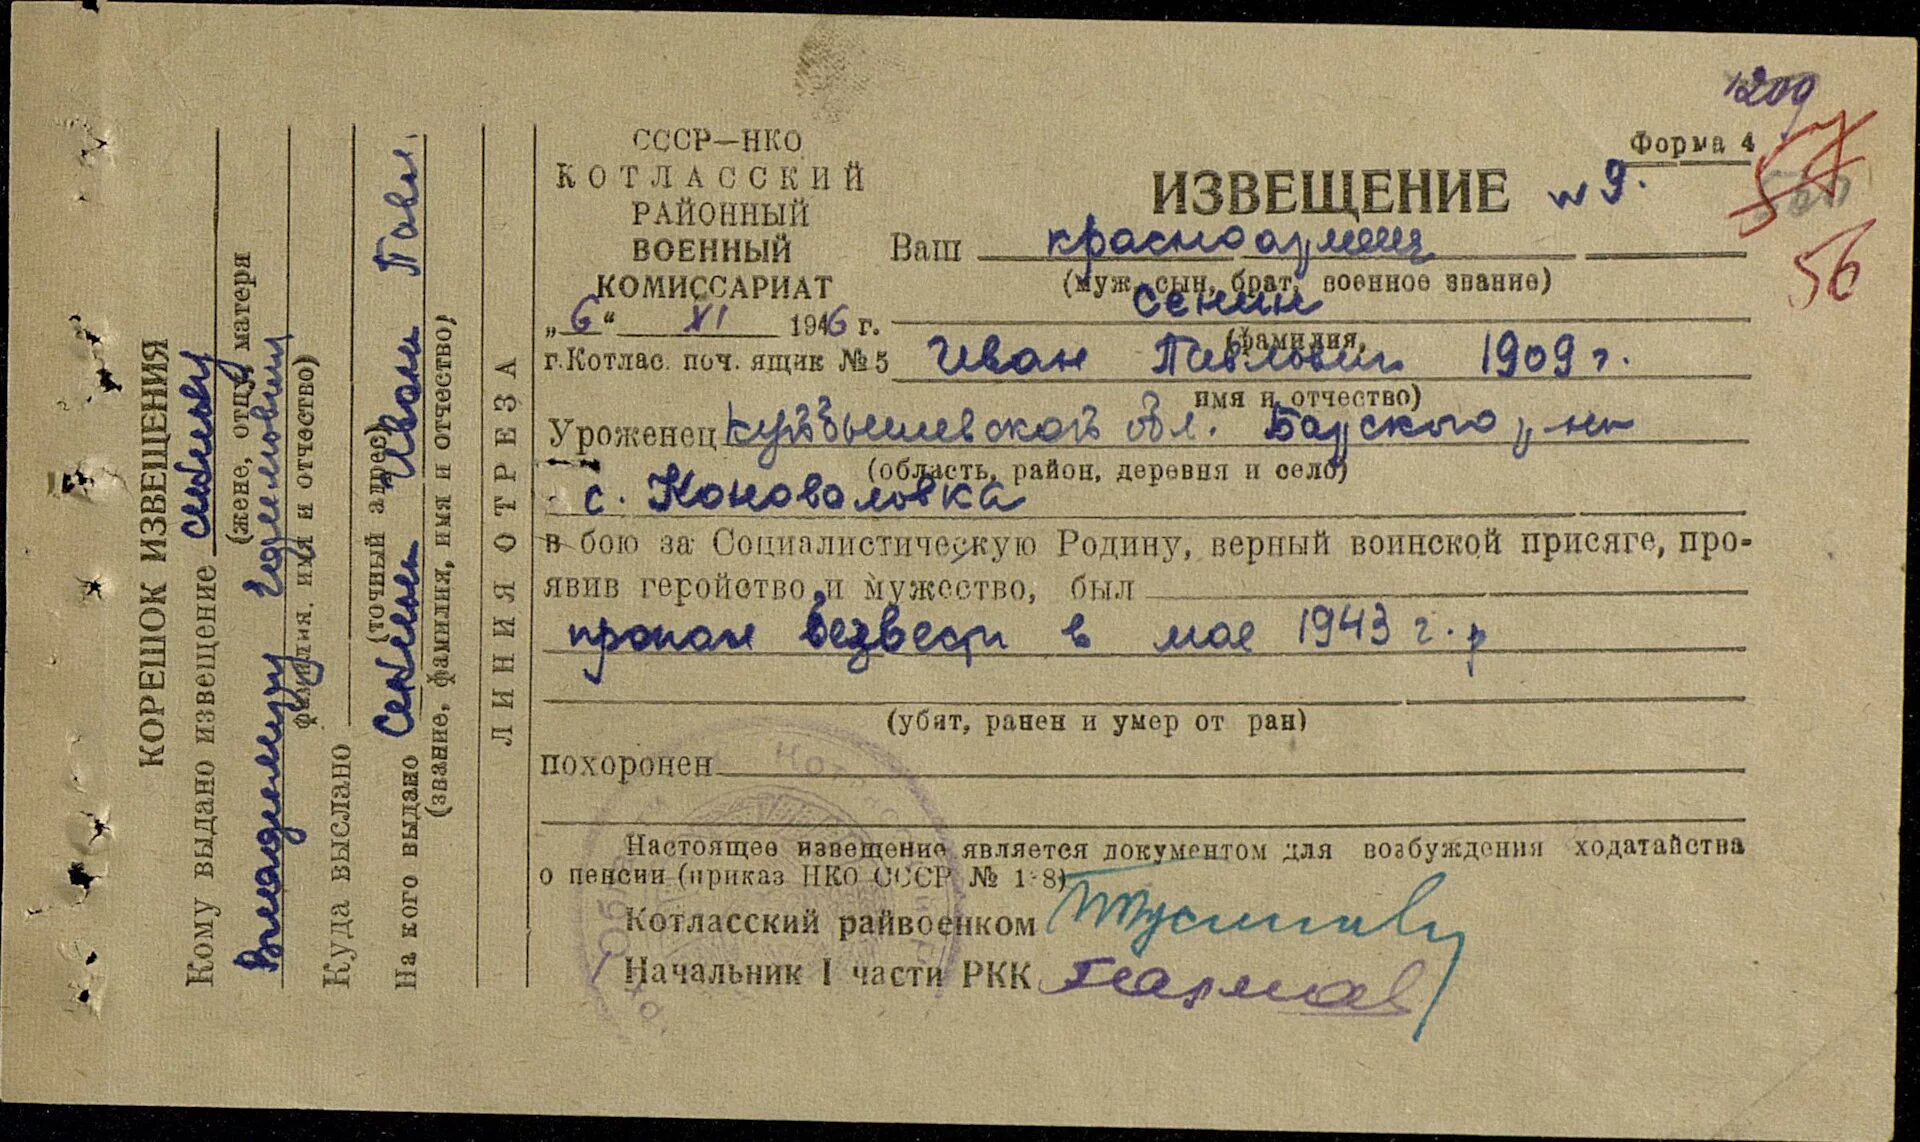 1209
Форма 4
56
СССР—НКО
КОТЛАССКИЙ
РАЙОННЫЙ
ВОЕННЫЙ
КОМИССАРИАТ
„6“ XI 1946 г.
г. Котлас. поч. ящик № 5
ИЗВЕЩЕНИЕ № 9.
Ваш красноармеец
(муж, сын, брат, военное звание)
Сенин
(фамилия,
Иван Павлович 1909 г.
имя и отчество)
Уроженец Куйбышевской обл. Борского р-на
(область, район, деревня и село)
с. Коноваловка
в бою за Социалистическую Родину, верный воинской присяге, про-
явив геройство и мужество, был
пропал безвести в мае 1943 г.
(убит, ранен и умер от ран)
похоронен
Настоящее извещение является документом для возбуждения ходатайства
о пенсии (приказ НКО СССР № 1-8)
Котласский райвоенком
Начальник I части РКК
ЛИНИЯ ОТРЕЗА
КОРЕШОК ИЗВЕЩЕНИЯ
Кому выдано извещение
(жене, отцу, матери
Владимиру
фамилия, имя и отчество)
Куда выслано
(точный адрес)
На кого выдано Иван Павл.
(звание, фамилия, имя и отчество)